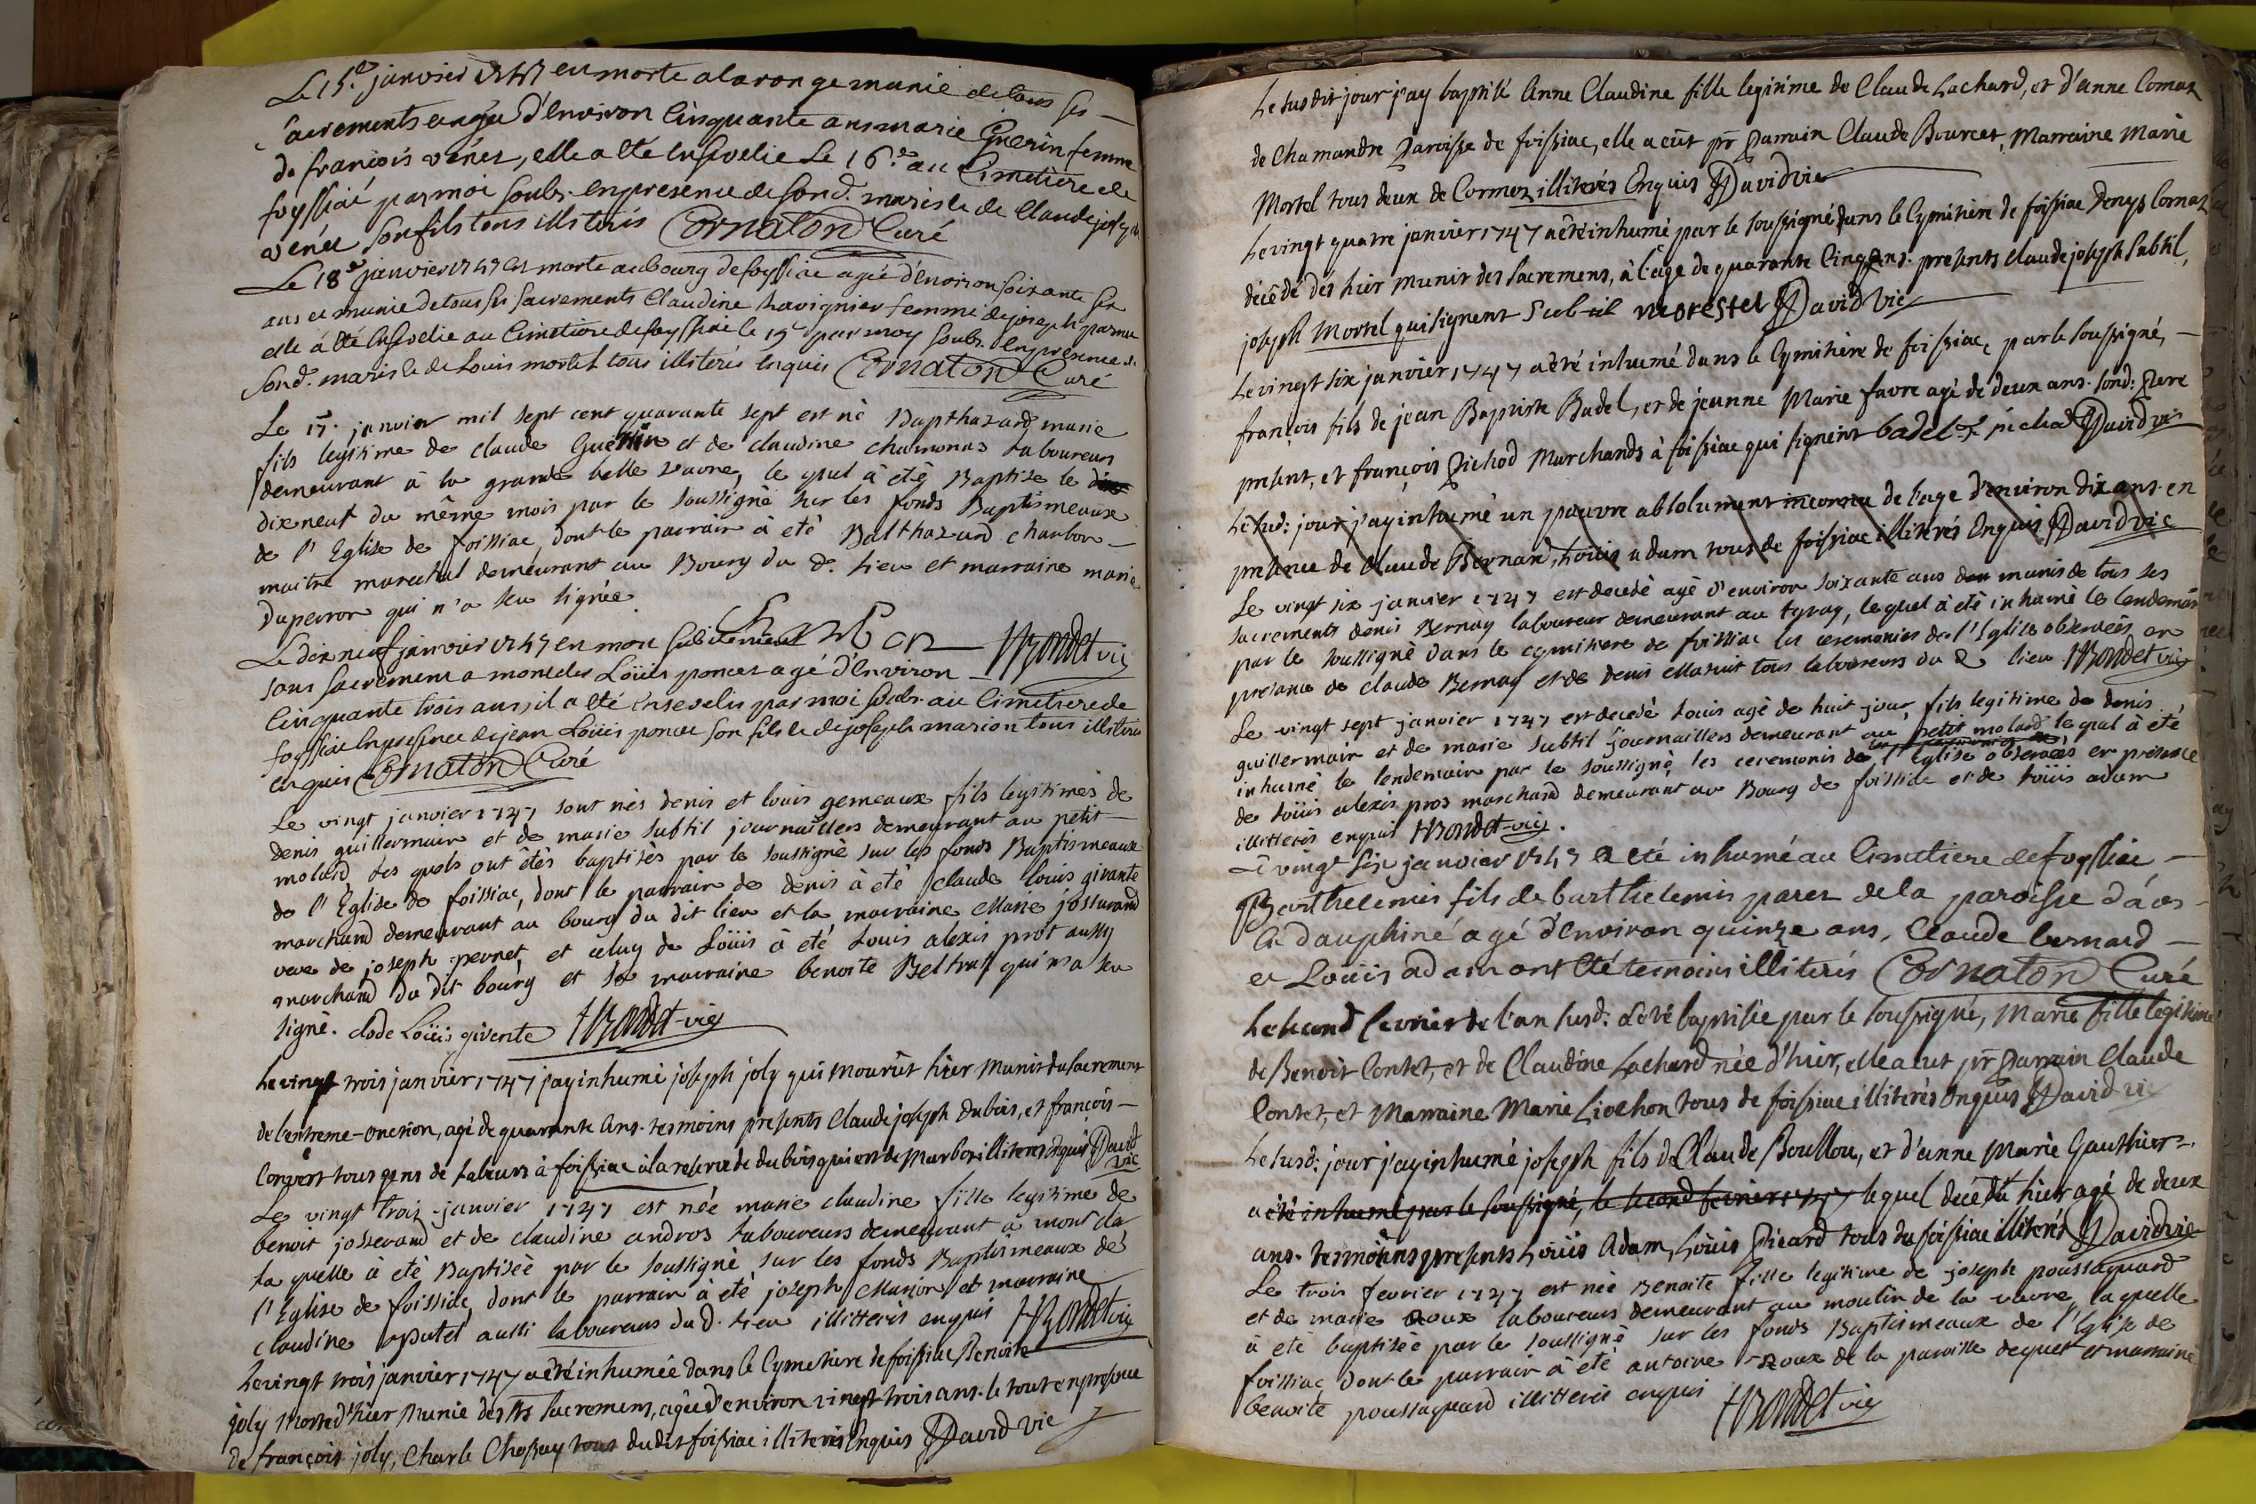 Le 15.e janvier 1747 est morte a la ronge munie de tous ses
sacrements agée d'environ Cinquante ans marie Guerin femme
de françois venez, elle a eté Ensevelie Le 16.e au Cimetiere de
foyssiat par moi soubs. en presence de sond. maris et de Claude joseph
venez son fils tous illiterés Cornaton Curé
Le 18.e janvier 1747 est morte au bourg de foyssiac agée d'environ soixante six
ans et munie de tous ses sacrements Claudine Ravignier femme de joseph
elle à eté Ensevelie au Cimetiere de foyssiac le 19.e par moy soubs. En presence de
sond. maris et de Louis mortel tous illiterés Enquis Cornaton Curé
Le 17. janvier mil sept cent quarante sept est né Bapthazard marie
fils legitime de claude Guerin et de claudine chamonas laboureurs
demeurant à la grande belle vavre, le quel à eté Baptisé le
dix neuf du même mois par le soussigné sur les fonds Baptismeaux
de l'Eglise de foissiac, dont le parrain à eté Balthazard charbon
maitre marechal demeurant au Bourg du d. lieu et marraine marie
Duperron qui n'a seu signée.
Charbon HBondet vic
Le dix neuf janvier 1747 est mort subitement
sans sacrement a montdes Loüis poncet agé d'Environ
Cinquante trois ans, il a eté Ensevelis par moi soubs. au Cimetiere de
foyssiac En presence de jean Loüis poncet son fils et de joseph marion tous illiterés
enquis Cornaton Curé
Le vingt janvier 1747 sont nés denis et louis gemeaux fils legitimes de
denis guillermain et de marie subtil journailliers demeurant au petit
molard les quels ont étés baptisés par le soussigné sur les fonds Baptismeaux
de l'Eglise de foissiac, dont le parrain de denis à eté claude louis givante
marchand demeurant au bourg du dit lieu et la marraine Marie josserand
veve de joseph pernet, et celuy de Loüis à eté Louis alexis prot aussy
marchand du dit bourg et sa marraine benoite Beltraf qui n'a seu
signé. Clode Loüis givente HBondet vic
Le vingt trois janvier 1747 j'ay inhumé joseph joly qui mourût hier Munit du sacrement
de l'extreme-onction, agé de quarante ans. tesmoins presents Claude joseph dubois, et françois
Convert tous gens de labeurs à foissiac à la reserve de dubois qui est de Marboz illiterés Enquis David vic
Le vingt trois janvier 1747 est née marie claudine fille legitime de
benoit josserand et de claudine andros laboureurs demeurant à mont da
la quelle à eté Baptisée par le soussigné sur les fonds Baptismeaux de
l'Eglise de foissiac, dont le parrain à eté joseph Marion et marraine
claudine putel aussi laboureurs du d. lieu illitterés enquis HBondet vic
Le vingt trois janvier 1747 a été inhumée dans le Cymetiere de foissiac Benoite
joly Morte d'hier Munie des Sts sacremens, agée d'environ vingt trois ans. le tout en presence
de françois joly, Charle Chossay tous du dit foissiac illiterés Enquis David vic
Le susdit jour j'ay baptisé Anne Claudine fille legitime de Claude Lachard, et d'anne Comas
de Chamandre Paroisse de foissiac, elle a eût pr Parrain Claude Bourcet, Marraine Marie
Mortel tous deux de Cormoz illiterés Enquis David vic
Le vingt quatre janvier 1747 a été inhumé par le soussigné dans le Cymitière de foissiac Denys Comas
décédé dés hier munir des sacremens, à l'age de quarante cinq ans. presents claude joseph Subtil,
joseph Mortel qui signent Subtil morestel David vic
Le vingt six janvier 1747 a été inhumé dans le Cymitière de foissiac, par le soussigné,
françois fils de jean Baptiste Badel, et de jeanne Marie favre agé de deux ans. sond: Pere
present, et françois Pichod Marchands à foissiac qui signent badel f pichod David vic
Le sud: jour j'ay inhumé un pauvre absolument inconnu de l'age d'environ dix ans. en
presence de Claude Bernard, Loüis adam tous de foissiac illiterés Enquis David vic
Le vingt six janvier 1747 est decedé agé d'environ soixante ans munis de tous ses
sacrements denis Bernay laboureur demeurant au tyray, lequel à eté inhumé le lendemain
par le soussigné dans le cymitiere de foissiac les ceremonies de l'Eglise observeés en
presance de claude Bernay et de denis Maruit tous laboureurs du d lieu HBondet vic
Le vingt sept janvier 1747 est decedé Louis agé de huit jour, fils legitime de denis
guillermain et de marie subtil journailliers demeurant au petit molard le quel à eté
inhumé le lendemain par le soussigné, les ceremonies de l'Eglise observeés en presence
de Loüis alexis pros marchand demeurant au Bourg de foissiac et de Loüis adam
illitterés enquis HBondet-vic.
Le vingt six janvier 1747 a eté inhumé au Cimetiere de foyssiac
Barthelemis fils de barthelemis parez de la paroisse d'aos
en dauphiné agé d'Environ quinze ans, Claude bernard
et Loüis adam ont eté temoins illiterés Cornaton Curé
Le second fevrier de l'an susd: a eté baptisée par le soussigné, Marie fille legitime
de Benoit Contet, et de Claudine Lachard née d'hier, elle a eut pr Parrain Claude
Contet, et Marraine Marie Liochon tous de foissiac illiterés Enquis David vic
Le susd: jour j'ay inhumé joseph fils de Claude Boullou, et d'anne Marie Gauthier
a été inhumé par le soussigné, le second fevrier 1747 lequel décéda hier agé de deux
ans. tesmoins presents Loüis Adam, Loüis Picard tous de foissiac illiterés David vic
Le trois fevrier 1747 est née Benoite fille legitime de joseph poussaguard
et de marie Roux laboureurs demeurant au moulin de la vavre, la quelle
à eté baptisée par le soussigné sur les fonds Baptismeaux de l'Eglise de
foissiac dont le parrain à eté antoine Roux de la paroisse dequet et marraine
benoite poussaguard illitterés enquis HBondet vic